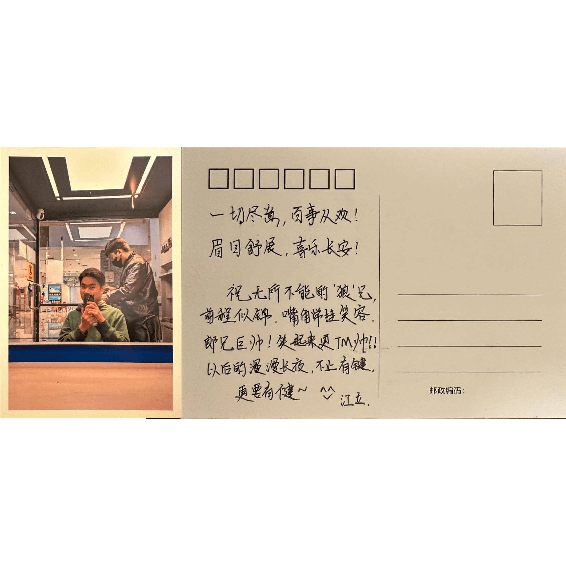 一切尽意，百事从欢！
眉目舒展，喜乐长安！
祝无所不能的'狼'兄，
前程似锦，嘴角常挂笑容，
即兄巨帅！笑起来更TM帅!!
以后的漫漫长夜，不止有键，
更要有健～ ^^
江立.
邮政编码：